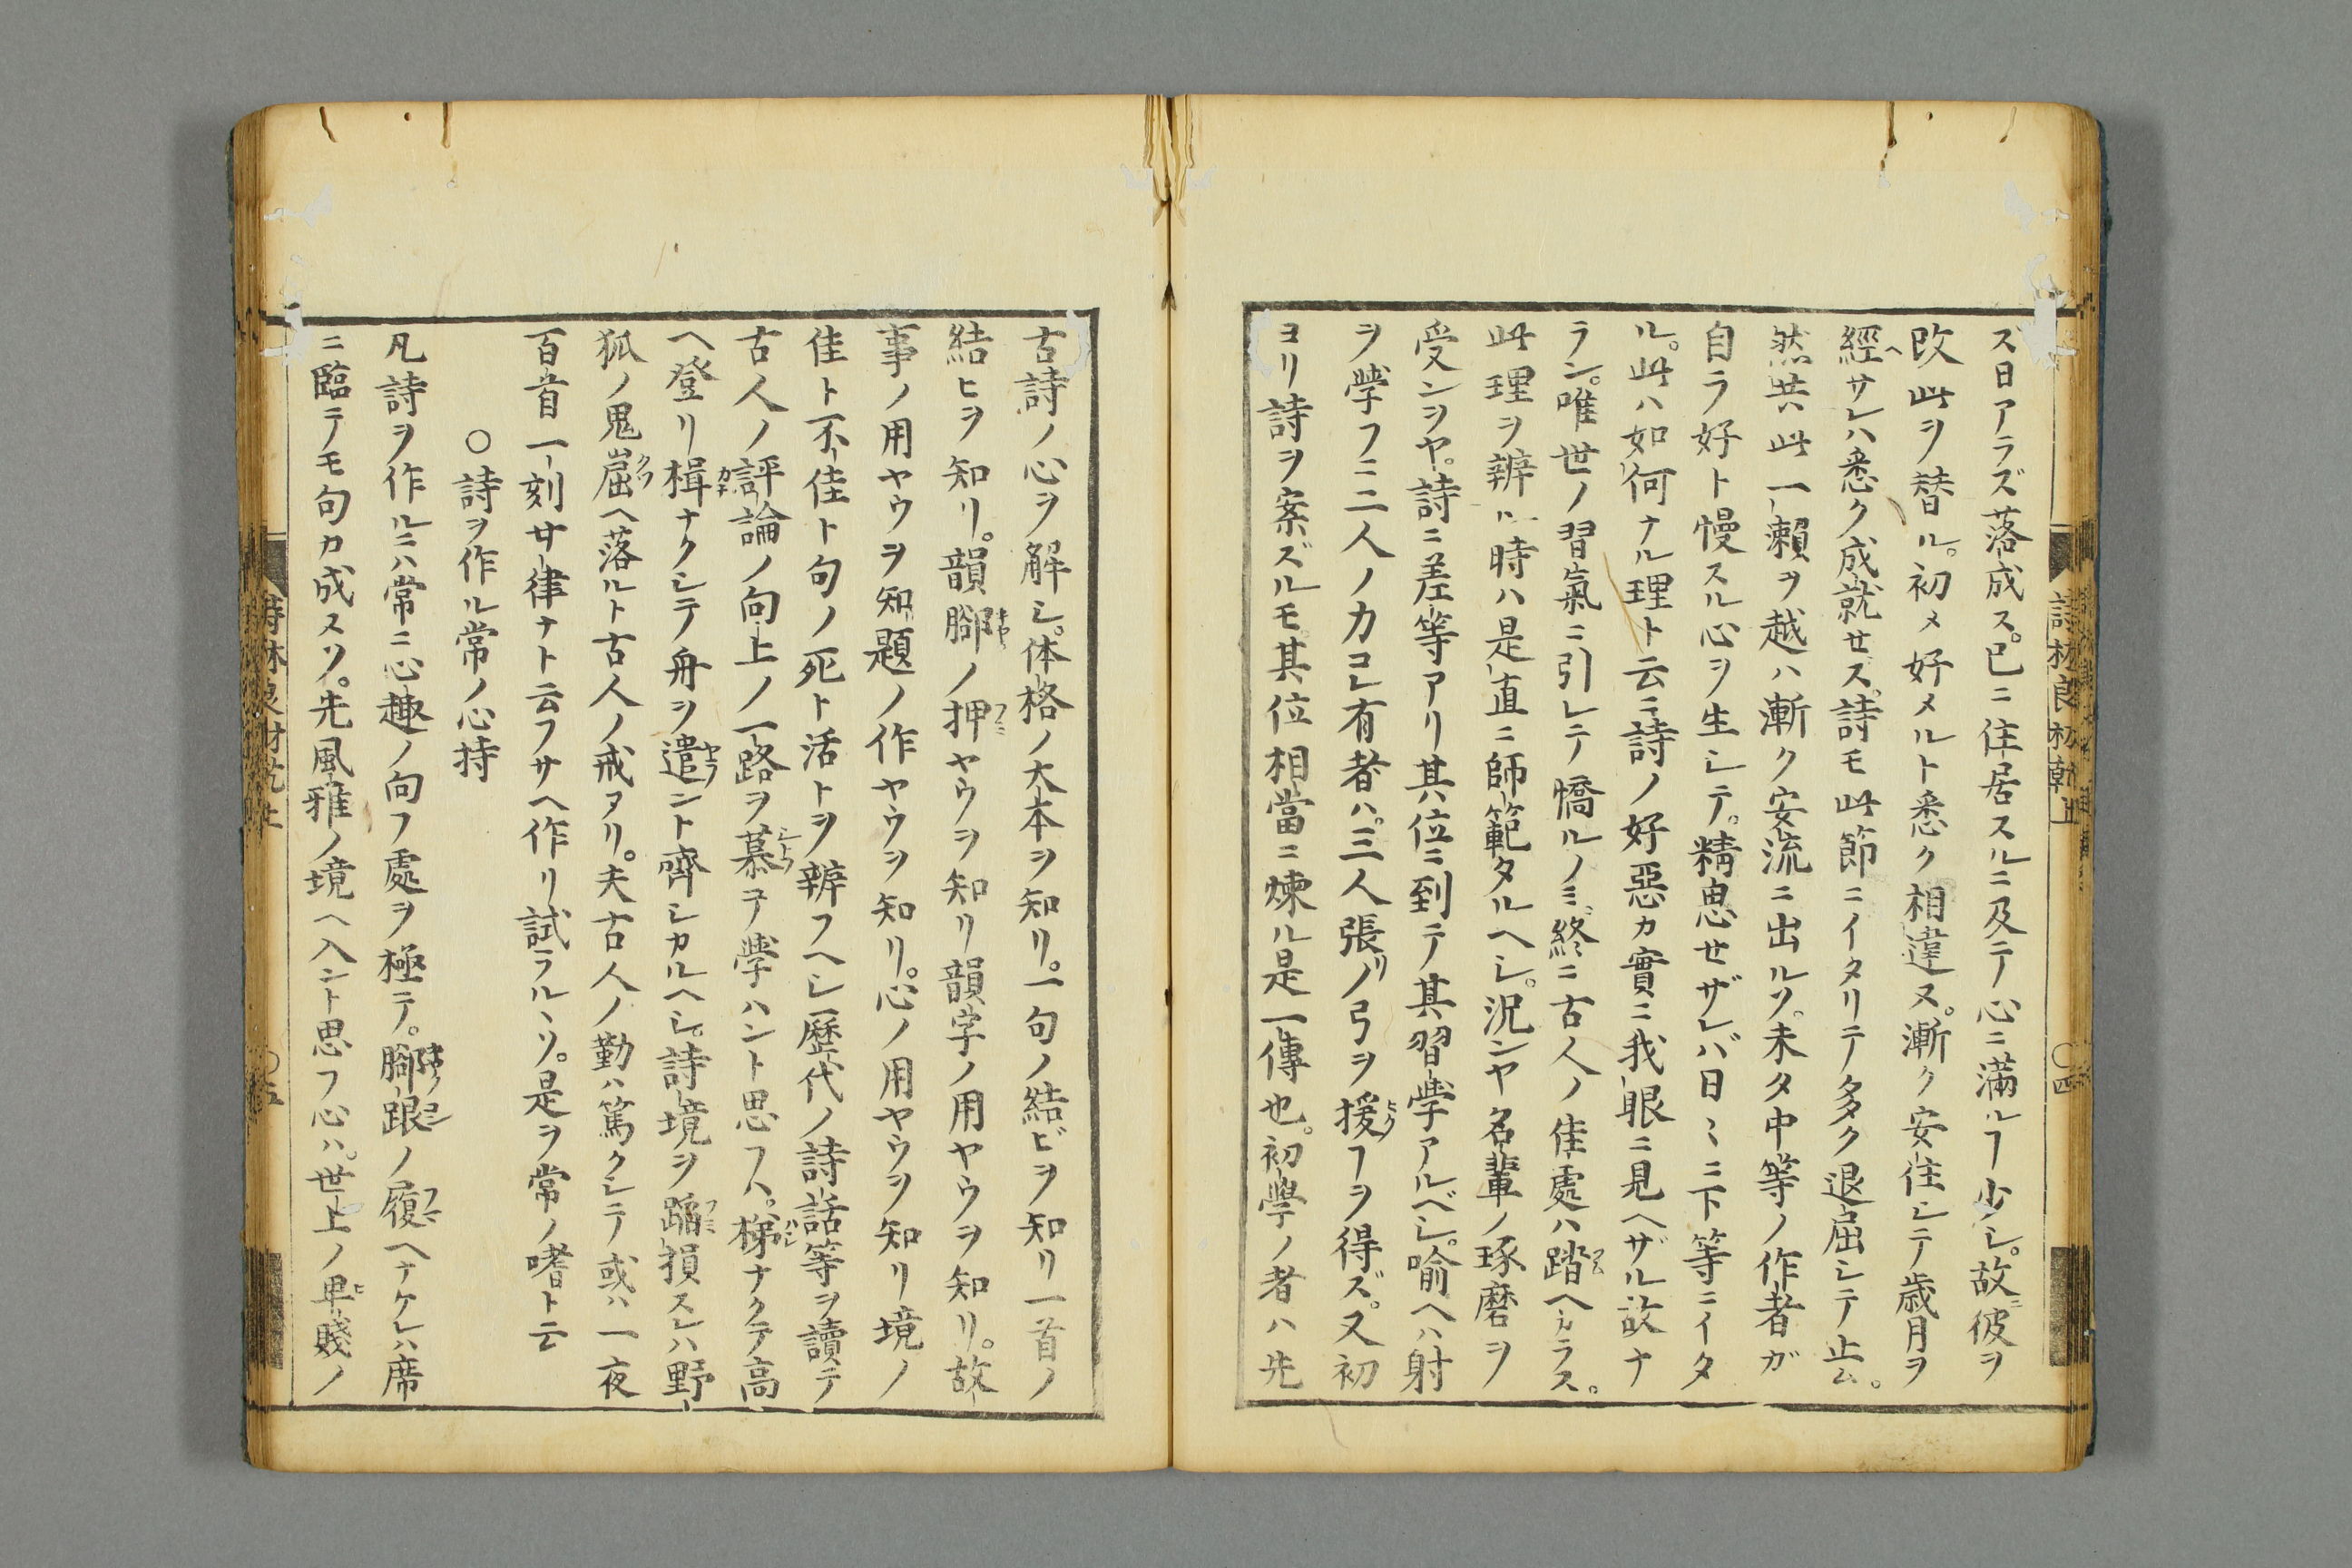 スヨアラズ落成ス。已ニ住居スルニ及テ心ニ満ルヿ少シ。故ニ彼ヲ
改此ヲ替ル。初メ好メルト悉ク相違ヌ。漸ク安住シテ歳月ヲ
經サレハ悉ク成就セス。詩モ此節ニイタリテ多ク退屈シテ止ム。
然共此一瀬ヲ越ハ漸ク安流ニ出ルソ。未タ中等ノ作者ガ
自ラ好ト慢スル心ヲ生シテ。精思セザレバ日〻ニ下等ニイタ
ル。此ハ如何ナル理ト云ニ詩ノ好惡カ實ニ我眼ニ見ヘザル故ナ
ラン。唯世ノ習氣ニ引レテ憍ルノミ。終ニ古人ノ佳處ハ踏ヘカラス。
此理ヲ辨ル時ハ是直ニ師範タルヘシ。況ンヤ名輩ノ琢磨ヲ
受ンヲヤ。詩ニ差等アリ其位ニ到テ其習學アルベシ。喻ヘハ射
ヲ學フニ二人ノカコレ有者ハ。三人張ノ弓ヲ援フヲ得ズ。又初
ヨリ詩ヲ案ズルモ其位相當ニ煉ル是一傳也。初學ノ者ハ先
詩林良材乾上
〇四
古詩ノ心ヲ解シ。体格ノ大本ヲ知リ。一句ノ結ビヲ知リ一首ノ
結ヒヲ知リ。韻腳ノ押ヤウヲ知リ韻字ノ用ヤウヲ知リ。故
事ノ用ヤウヲ知題ノ作ヤウヲ知リ。心ノ用ヤウヲ知リ境ノ
佳ト不佳ト句ノ死ト活トヲ辨フヘシ歷代ノ詩話等ヲ讀テ
古人ノ評論ノ向上ノ一路ヲ慕テ學ハント思フハ。梯ナクテ高
ヘ登リ楫ナクシテ舟ヲ遣ント齊シカルヘシ。詩境ヲ蹈損スレハ野
狐ノ鬼崛ヘ落ルト古人ノ戒アリ。夫古人ノ勤ハ篤クシテ或ハ一夜
百首一刻廿律ナト云フサヘ作リ試ラルヽソ。是ヲ常ノ嗜ト云
〇詩ヲ作ル常ノ心持
凡詩ヲ作ルニハ常ニ心趣ノ向フ處ヲ極テ。腳跟ノ履ヘナケレハ席
ニ臨テモ句カ成スソ。先風雅ノ境ヘ入ント思フ心ハ。世上ノ卑賤ノ
詩林良材乾上
〇五